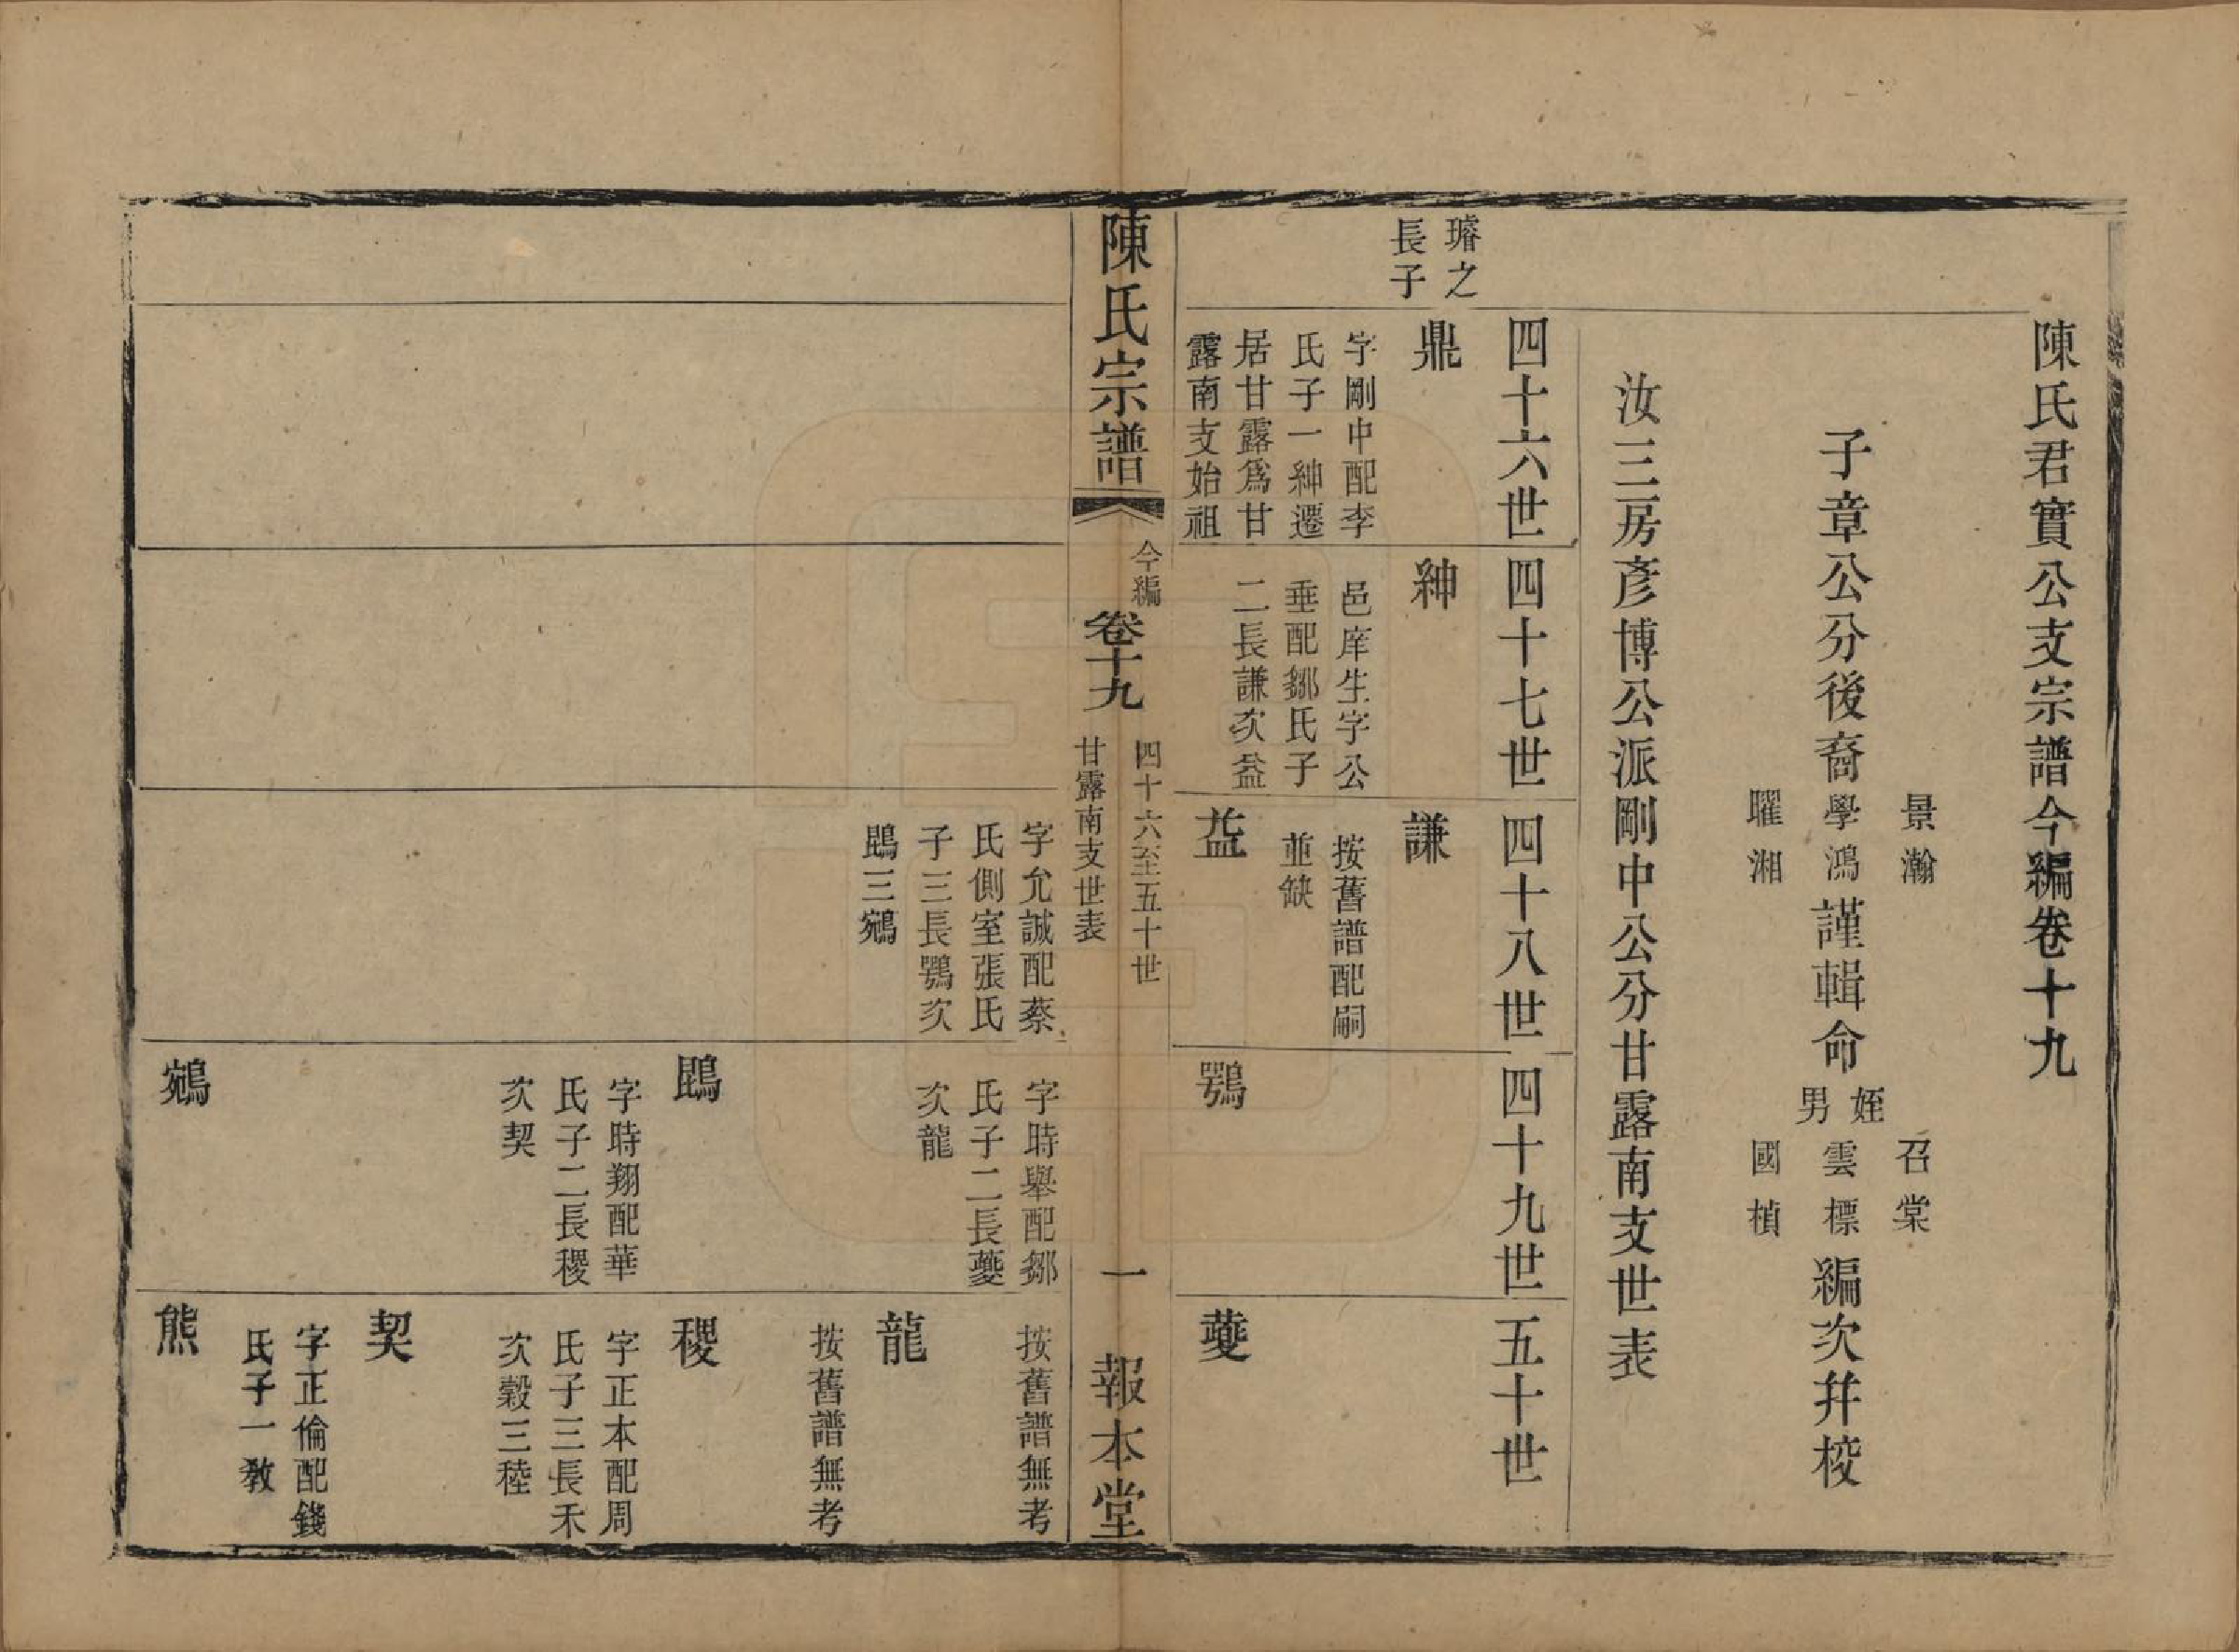 陳氏君實公支宗譜今編卷十九
子章公分後裔
景瀚
學鴻
曜湘
謹輯命
姪
男
召棠
雲標
國楨
編次幷校
汝三房彥博公派剛中公分甘露南支世表
四十六世
四十七世
四十八世
四十九世
五十世
璿之
長子
鼎
字剛中配李
氏子一紳遷
居甘露爲甘
露南支始祖
紳
邑庠生字公
垂配鄒氏子
二長謙次益
謙
按舊譜配嗣
並缺
益
鶚
夔
陳氏宗譜
今編
卷十九
四十六至五十世
甘露南支世表
一
報本堂
字允誠配蔡
氏側室張氏
子三長鶚次
鵾三鵷
字時舉配鄒
氏子二長夔
次龍
按舊譜無考
龍
按舊譜無考
鵾
字時翔配華
氏子二長稷
次契
稷
字正本配周
氏子三長禾
次穀三稑
契
字正倫配錢
氏子一教
鵷
熊